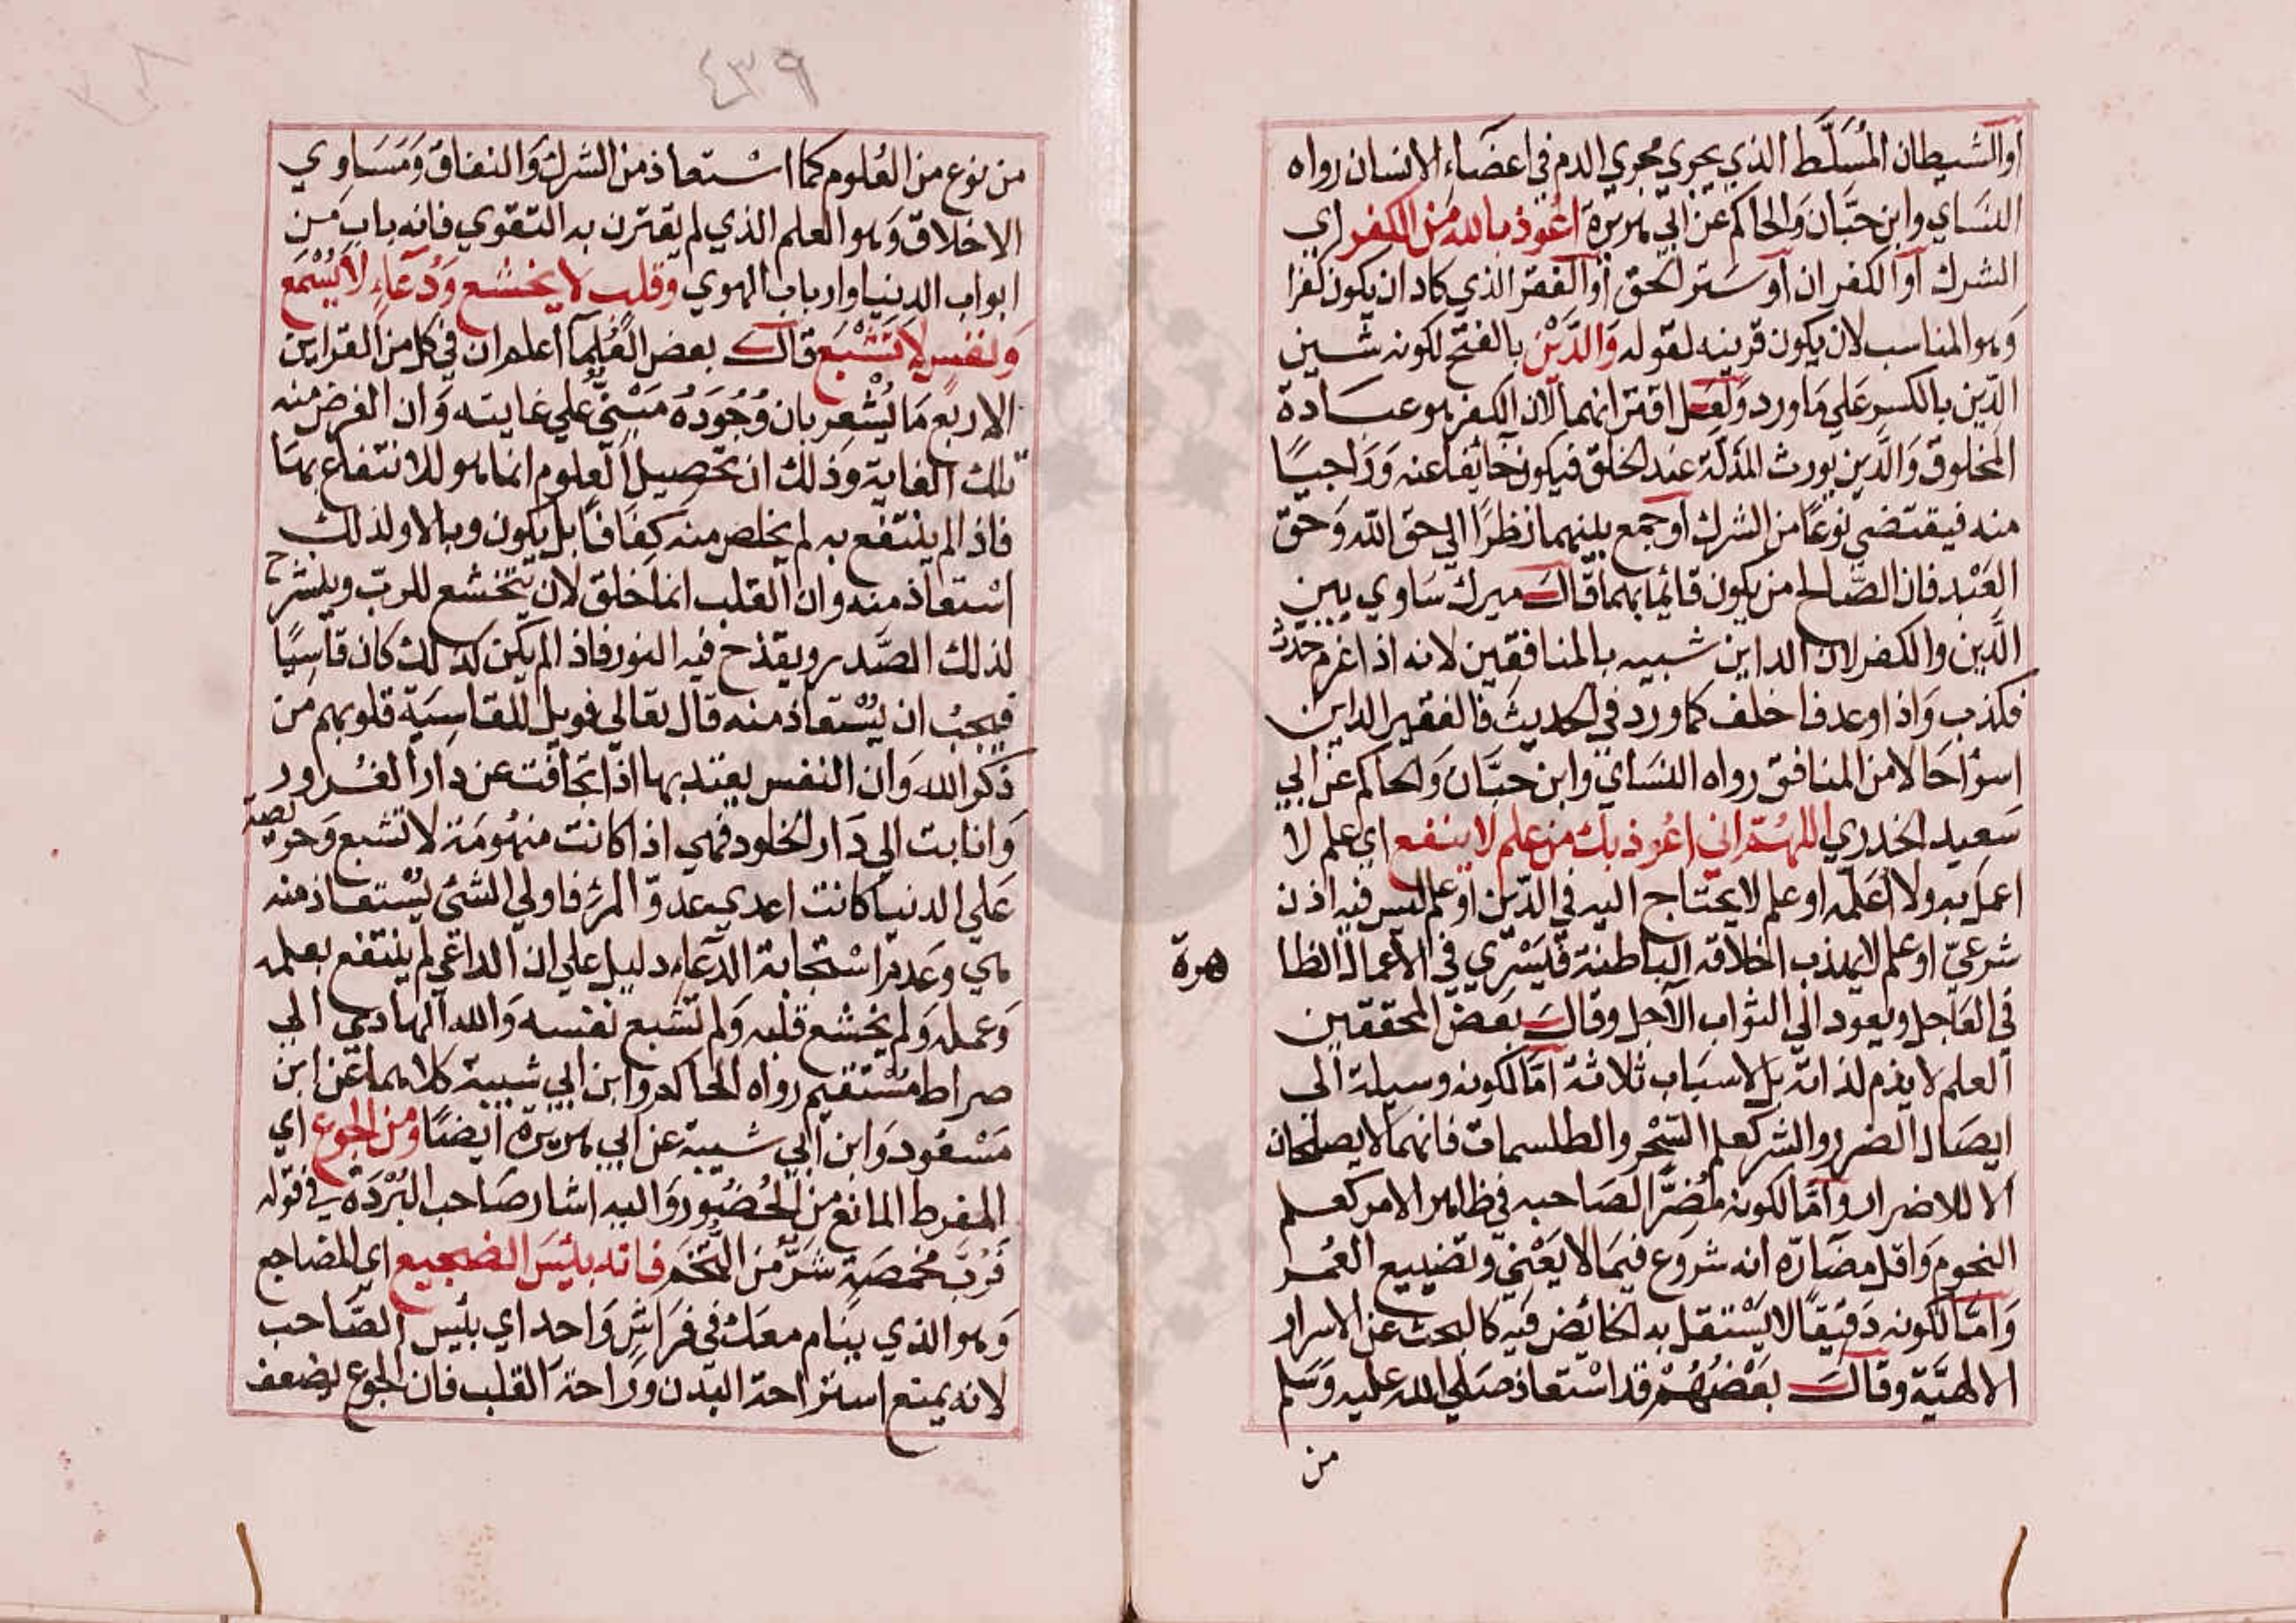 او الشيطان المُسَلَّط الذي يجري مجري الدم في اعضاء الانسان رواه
النسَاي وابن حبَّان وَالحاكم عن ابي هريرة اعُوذ بالله من الكفر اي
الشرك او الكفران او سَتر الحق او الفقر الذي كاد ان يكون كفرا
وَهو المناسب لان يكون قرينه لقوله وَالدَّيْن بالفتح لكونه شين
الدّين بالكسر علي مَا ورد وَلعَل اقترانهما لان الكفر هو عبادة
المخلوق وَالدَّين يورث المذلة عند الخلق فيكون خائفا عنه وَرَاجيًا
منه فيقتضي نوعًا من الشرك او جمع بينهما نظرًا الي حق الله وَحق
العَبْد فان الصَّالح من يكون قائما بهما قال ميرك سَاوي بين
الدَّين والكفر لان الداين شبيه بالمنافقين لانه اذا غرم حدث
فكذب وَاذا وعد فاخلف كما ورد في الحديث فالفقير الداين
اسوأ حَالا من المنافق رواه النسَاي وابن حبَّان وَالحاكم عن ابي
سَعيد الخدري اللهُمّ اني اعُوذ بك من علم لا ينفع اي علم لا
اعمل به ولا اُعَلّمه او علم لا يحتاج اليه في الدّين او علم ليس فيه اذن
شرعيّ او علم لا يهذب اخلاقه الباطنة فيَسْري في الاعمال الظا
هرة
في العَاجل ويعود الي الثواب الآجل وقال بعض المحققين
العلم لا يذم لذاته بل لاسبَاب ثلاثة امّا لكونه وسيلة الي
ايصَال الضرر والشر كعلم السّحْر والطلسمات فانهما لا يصلحان
الا للاضرار وَامَّا لكونه مُضرًّا لصَاحبه في ظاهر الامر كعلم
النجوم وَاقل مضَارّه انه شروع فيمَا لا يَعْني وتضييع العُمر
وَامّا لكونه دَقيقًا لا يَسْتقل به الخائض فيه كالبحث عن الاسرار
الالهيَّة وقال بعضُهُمْ قد اسْتعَاذ صَلي الله عليه وَسَلم
من
٤٣٩
من نوع من العُلوم كما اسْتعاذ من الشرك وَالنفاق وَمَسَاوي
الاخلاق وَهو العلم الذي لم يقترن به التقوي فانه باب من
ابواب الدنيا وارباب الهوي وقلب لا يخشع وَدُعَاءٍ لا يُسْمَع
وَنفس لا تشْبَع قال بعض العُلما اعلم ان في كل من القراين
الاربع مَا يُشْعِر بان وُجُودَهُ مَبْنيٌّ علي غايته وَان الغرض منه
تلك الغاية وَذلك ان تحصيل العلوم انما هو للانتفاع بهَا
فاذا لم ينتفع به لم يخلص منه كِفَافًا بل يكون وبالا ولذلك
اسْتعَاذ منه وان القلب انما خلق لان يتخشع للرب وينشرح
لذلك الصَّدر ويقذح فيه النور فاذا لم يكن كذلك كان قاسِيًا
فيجبُ ان يُسْتعاذ منه قال تعالي فويل للقاسِيَة قلوبهم من
ذكر الله وَان النفس يعتد بها اذا تجافت عن دار الغُرور
وَانابت الي دَار الخلود فهي اذا كانت منهُومَة لا تشبع وَحريصة
عَلي الدنيا كانت اعدي عدوّ المرْ فاولي الشئ يُسْتعاذ منه
هي وَعَدم اسْتجابة الدعَاء دليل علي ان الداعي لم ينتفع بعلمه
وَعمله وَلم يخشع قلبه وَلم تشبع نفسه وَالله الهادي الي
صراط مُسْتقيم رواه الحاكم وابن ابي شيبة كلاهما عن ابن
مَسْعُود وَابن ابي شيبة عن ابي هريرة ايضًا ومن الجوع اي
المفرط المانع من الحُضور وَاليه اشار صَاحب البُرْدَة في قوله
فَرُبّ مخمصَةٍ شَرٌّ مِنَ التُّخَمِ فانه بئسَ الضجيع اي المضاجع
وَهو الذي ينام معك في فرَاشٍ وَاحد اي بئس الصَّاحب
لانه يمنع استراحة البَدن وَرَاحة القلب فان الجوع يضعف